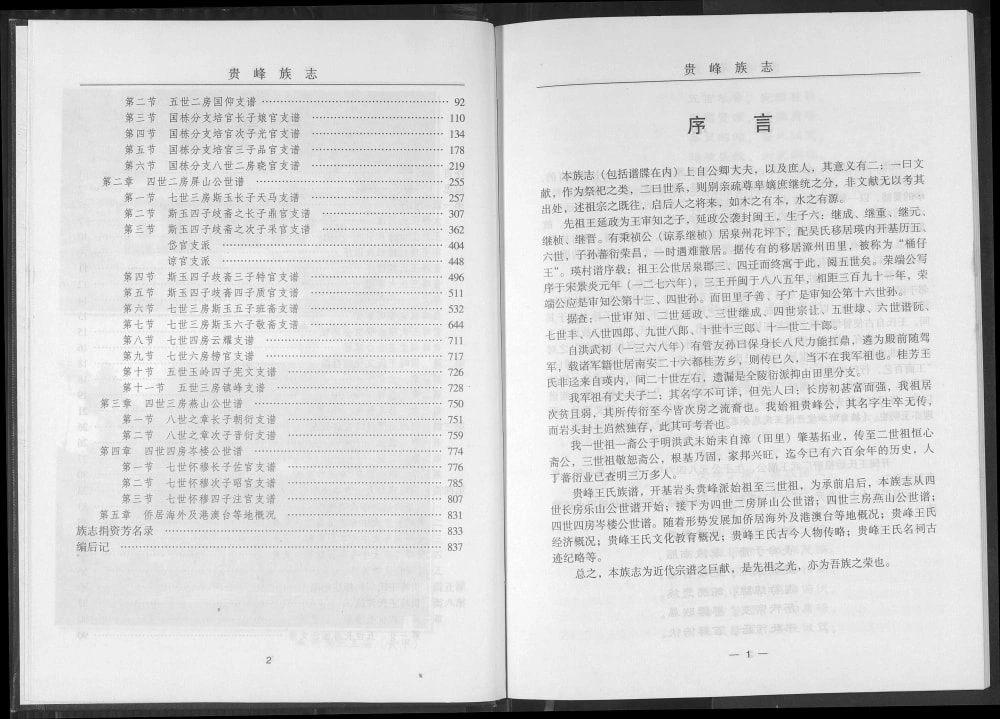 贵峰族志
第二节 五世二房国仰支谱 92
第三节 国栋分支培官长子娘官支谱 110
第四节 国栋分支培官次子光官支谱 134
第五节 国栋分支培官三子品官支谱 178
第六节 国栋分支八世二房晓官支谱 219
第二章 四世二房屏山公世谱 255
第一节 七世三房斯玉长子天马支谱 257
第二节 斯玉四子歧斋之长子鼎官支谱 307
第三节 斯玉四子歧斋之次子采官支谱 362
岱官支派 404
谅官支派 448
第四节 斯玉四子歧斋三子特官支谱 496
第五节 斯玉四子歧斋四子质官支谱 511
第六节 七世三房斯玉五子班斋支谱 532
第七节 七世三房斯玉六子敬斋支谱 644
第八节 七世四房云耀支谱 711
第九节 七世六房榜官支谱 717
第十节 五世玉岭四子宪文支谱 726
第十一节 五世三房镇峰支谱 728
第三章 四世三房燕山公世谱 750
第一节 八世之章长子朝衍支谱 751
第二节 八世之章次子晋衍支谱 759
第四章 四世四房岑楼公世谱 774
第一节 七世怀穆长子佐官支谱 776
第二节 七世怀穆次子昭官支谱 785
第三节 七世怀穆四子注官支谱 807
第五章 侨居海外及港澳台等地概况 831
族志捐资芳名录 833
编后记 837
2
贵峰族志
序 言
本族志（包括谱牒在内）上自公卿大夫，以及庶人，其意义有二：一曰文
献，作为祭祀之类，二曰世系，则别亲疏尊卑嫡庶继统之分，非文献无以考其
出处，述祖宗之既往，启后人之将来，如木之有本，水之有源。
先祖王延政为王审知之子，延政公袭封闽王，生子六：继成、继重、继元、
继桢、继晋。有秉桢公（谅系继桢）居泉州花坪下，配吴氏移居瑛内开基历五、
六世，子孙蕃衍荣昌，一时遇难散居。据传有的移居漳州田里，被称为“桶仔
王”。瑛村谱序载：祖王公世居泉郡三、四迁而终寓于此，阅五世矣。荣端公写
序于宋景炎元年（一二七六年），三王开闽于八八五年，相距三百九十一年，荣
端公应是审知公第十三、四世孙。而田里子善、子广是审知公第十六世孙。
据查：一世审知、二世延政、三世继成、四世宗让、五世埭、六世谐阮、
七世丰、八世四郎、九世八郎、十世十三郎、十一世二十郎。
自洪武初（一三六八年）有管友孙曰保身长八尺力能扛鼎，遴为殿前随驾
军，载诸军籍世居南安二十六都桂芳乡，则传已久，当不在我军祖也。桂芳王
氏非迳来自瑛内，间二十世左右，遗漏是全陵衍派抑由田里分支。
我军祖有丈夫子二：其名字不可详，但先人曰：长房初甚富而强，我祖居
次贫且弱，其所传衍至今皆次房之流裔也。我始祖贵峰公，其名字生卒无传，
而岩头封土岿然独存，此其可考者也。
我一世祖一斋公于明洪武末始末自漳（田里）肇基拓业，传至二世祖恒心
斋公，三世祖敬恕斋公，根基乃固，家邦兴旺，迄今已有六百余年的历史，人
丁蕃衍业已查明三万多人。
贵峰王氏族谱，开基岩头贵峰派始祖至三世祖，为承前启后，本族志从四
世长房乐山公世谱开始；接下为四世二房屏山公世谱；四世三房燕山公世谱；
四世四房岑楼公世谱。随着形势发展加侨居海外及港澳台等地概况；贵峰王氏
经济概况；贵峰王氏文化教育概况；贵峰王氏古今人物传略；贵峰王氏名祠古
迹纪略等。
总之，本族志为近代宗谱之巨献，是先祖之光，亦为吾族之荣也。
— 1 —